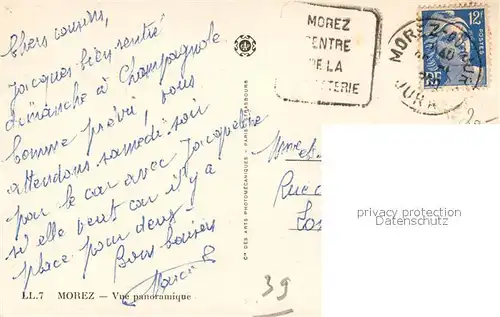 Chers cousins,
Jacques bien rentré
dimanche à Champagnole
Comme prévu, vous
attendons samedi soir
par le car avec Jacqueline
si elle veut car il y a
place pour deux
Bons baisers
LL.7 MOREZ — Vue panoramique
Cie DES ARTS PHOTOMÉCANIQUES - PARIS-STRASBOURG
MOREZ
CENTRE
DE LA
ETTERIE
MOREZ
JURA
12F
POSTES
Mme et
Rue
privacy protection
Datenschutz
39